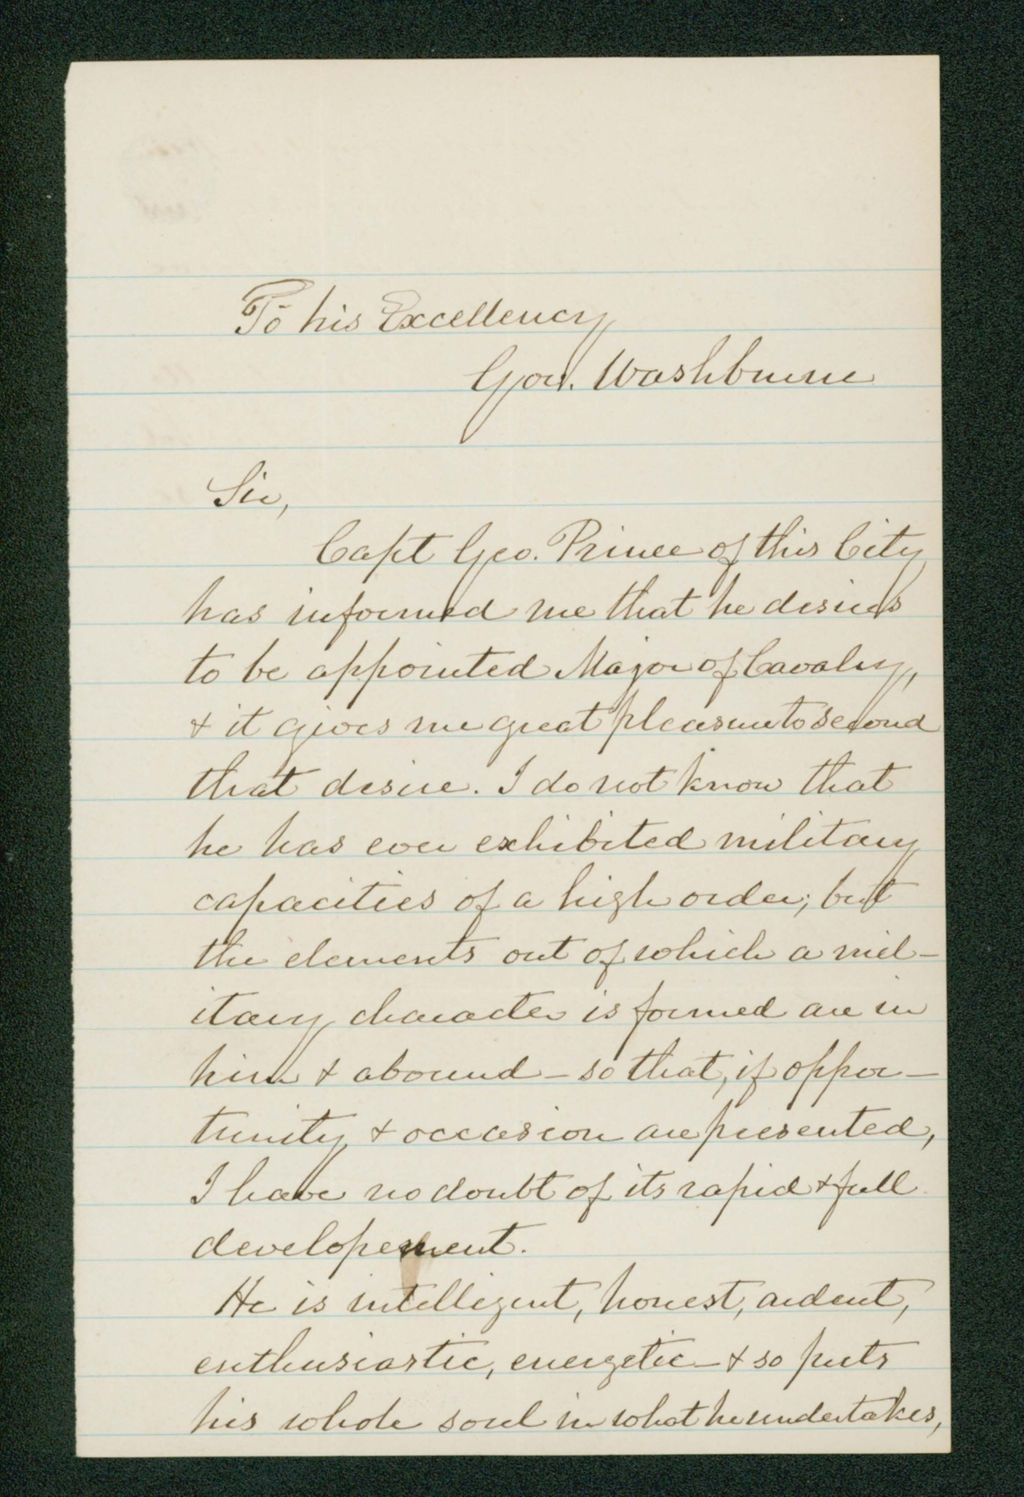 To his Excellency
Gov. Washburne
Sir,
Capt Geo. Prince of this City
has informed me that he desires
to be appointed Major of Cavalry,
& it gives me great pleasure to second
that desire. I do not know that
he has ever exhibited military
capacities of a high order; but
the elements out of which a mil-
itary character is formed are in
him & abound - so that, if oppor-
tunity & occasion are presented,
I have no doubt of its rapid & full
developement.
He is intelligent, honest, ardent,
enthusiastic, energetic - & so puts
his whole soul in what he undertakes,